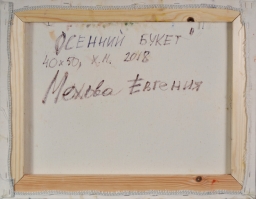 "ОСЕННИЙ БУКЕТ"
40х50, х.м. 2018
Мехова Евгения